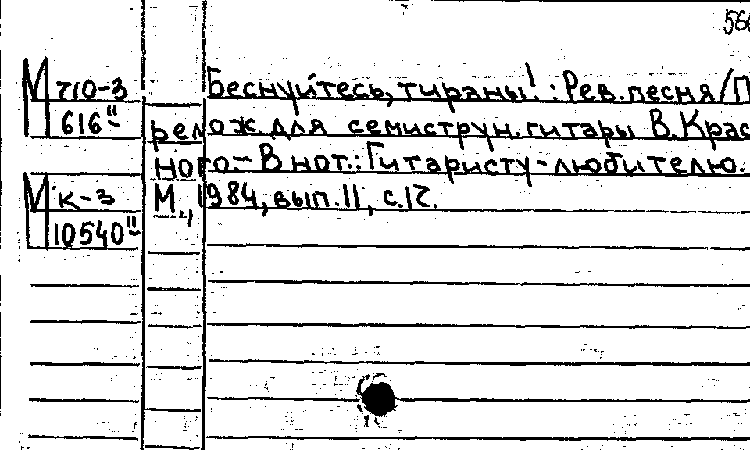 566
М 710-3 Беснуйтесь, тираны! : Рев. песня / П
616" релож. для семиструн. гитары В. Крас
ного. – В нот.: Гитаристу-любителю.
М к-3 М., 1984, вып. 11, с. 12.
10540"